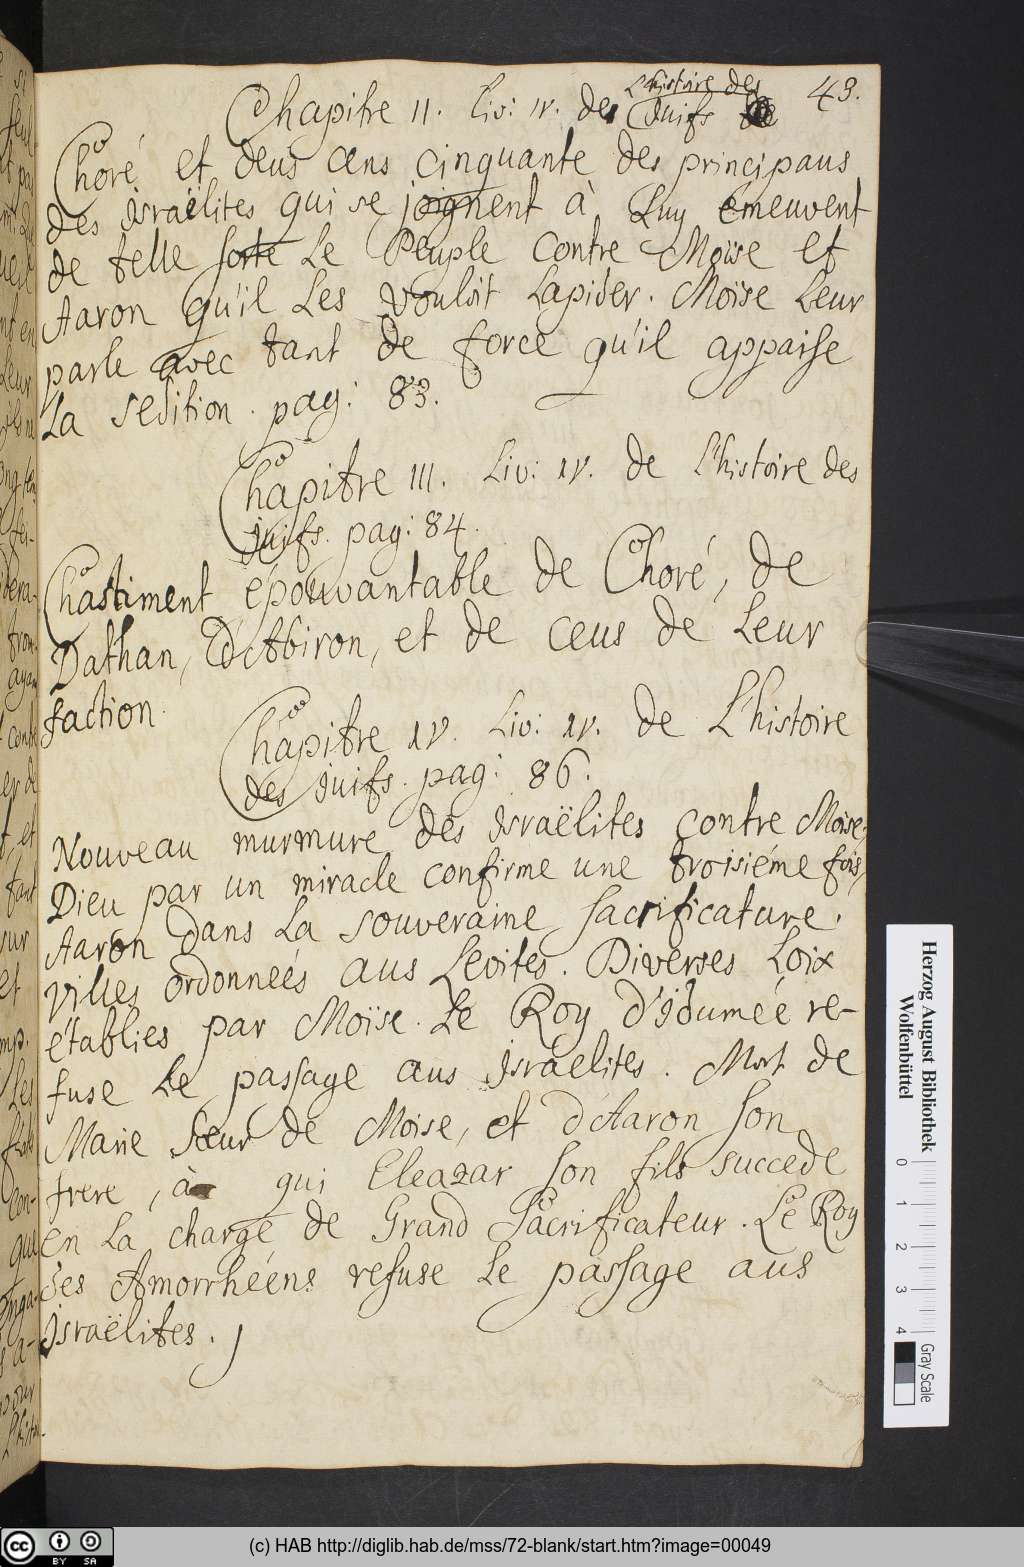 43.
L'histoire des
Chapitre II. Liv: IV. de Juifs
Choré et deus cens cinquante des principaus
des Israëlites qui se joignent à Luy émeuvent
de telle sorte Le Peuple contre Moïse et
Aaron qu'il Les vouloit Lapider. Moïse Leur
parle avec tant de force qu'il appaise
La sedition. pag: 83.
Chapitre III. Liv: IV. de L'histoire des
juifs. pag: 84.
Chastiment épouvantable de Choré, de
Dathan, d'Abiron, et de ceus de Leur
faction.
Chapitre IV. Liv: IV. de L'histoire
des juifs. pag: 86.
Nouveau murmure des Israëlites contre Moïse.
Dieu par un miracle confirme une troisiéme fois,
Aaron dans La souveraine sacrificature.
villes ordonneés aus Levites. Diverses Loix
établies par Moïse. Le Roy d'Idumée re-
fuse Le passage aus Israelites. Mort de
Marie Sœur de Moise, et d'Aaron son
frere, à qui Eleazar son fils succede
en La charge de Grand Sacrificateur. Le Roy
des Amorrhéens refuse Le passage aus
Israëlites.
Herzog August Bibliothek
Wolfenbüttel
0 1 2 3 4
Gray Scale
cc BY SA
(c) HAB http://diglib.hab.de/mss/72-blank/start.htm?image=00049